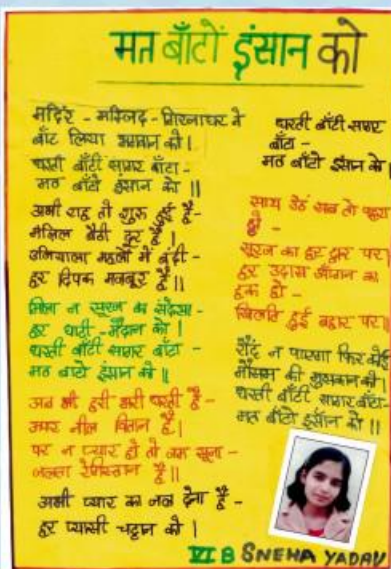 मत बाँटों इंसान को
मंदिर - मस्जिद - गिरजाघर ने
बाँट लिया भगवान को।
धरती बाँटी सागर बाँटा -
मत बाँटो इंसान को ॥
अभी राह तो शुरू हुई है -
मंजिल बैठी दूर है।
उजियाला महलों में बंदी -
हर दिपक मजबूर है॥
मिला न सूरज का संदेसा -
हर घाटी - मैदान को।
धरती बाँटी सागर बाँटा -
मत बाटो इंसान को ॥
अब भी हरी भरी धरती है -
ऊपर नील वितान है।
पर न प्यार हो तो जग सूना -
जलता रेगिस्तान है॥
अभी प्यार का जल देना है -
हर प्यासी चट्टान को।
धरती बाँटी सागर
बाँटा -
मत बाँटो इंसान को।
साथ उठें सब तो पहरा
हो -
सूरज का हर द्वार पर।
हर उदास आँगन का
हक हो -
खिलती हुई बहार पर॥
रौंद न पाएगा फिर कोई
मौसम की मुस्कान को।
धरती बाँटी सागर बाँटा-
मत बाँटो इंसान को ॥
VI B SNEHA YADAV